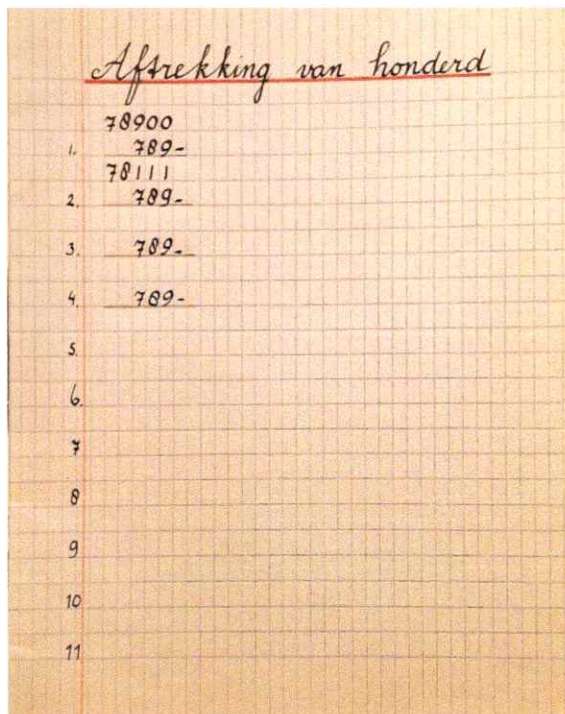 Aftrekking van honderd
78900
1. 789-
78111
2. 789-
3. 789-
4. 789-
5.
6.
7
8
9
10
11